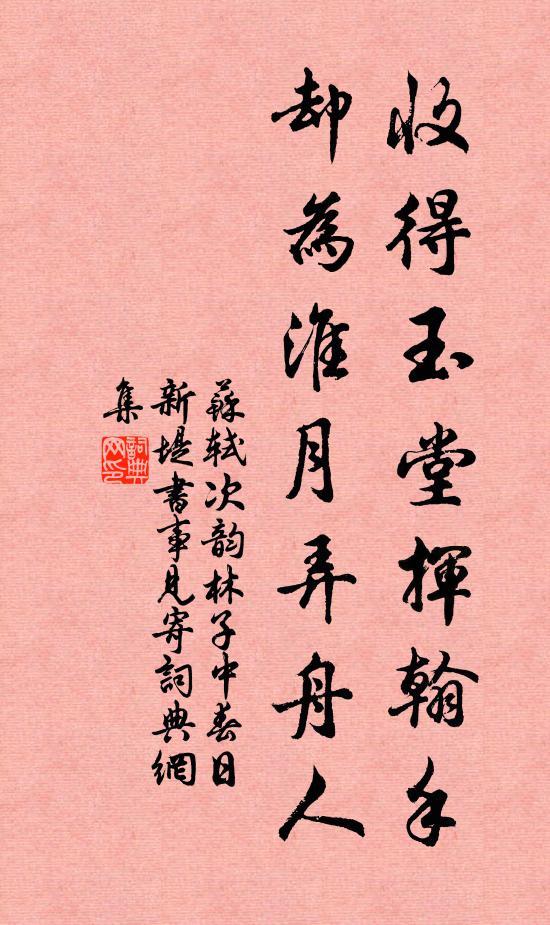 收得玉堂揮翰手
却為淮月弄舟人
蘇軾次韵林子中春日
新堤書事見寄詞典網
集
詞典網印